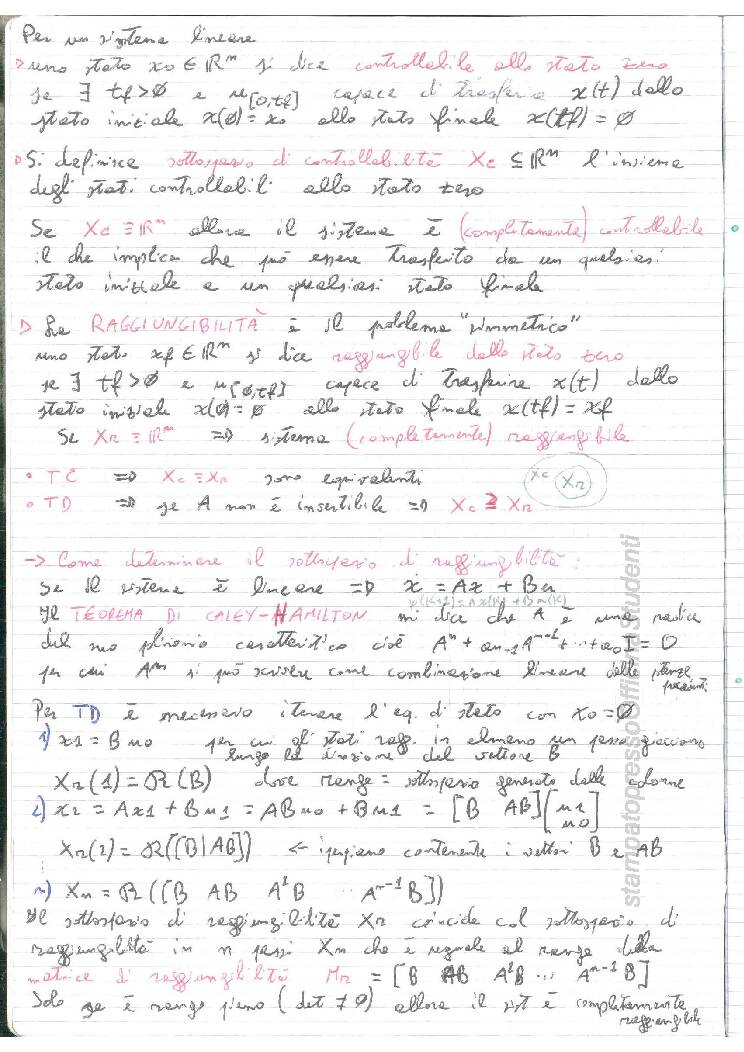 Per un sistema lineare
▷ uno stato x0 ∈ ℝⁿ si dice controllabile allo stato zero
se ∃ tf>Ø e u[0,tf] capace di trasferire x(t) dallo
stato iniziale x(Ø)=x0 allo stato finale x(tf)=Ø
▷ Si definisce sottospazio di controllabilità Xc ⊆ ℝⁿ l'insieme
degli stati controllabili allo stato zero
Se Xc ≡ ℝⁿ allora il sistema è (completamente) controllabile
il che implica che può essere trasferito da un qualsiasi
stato iniziale a un qualsiasi stato finale
▷ La RAGGIUNGIBILITÀ è il problema "simmetrico"
uno stato xf ∈ ℝⁿ si dice raggiungibile dallo stato zero
se ∃ tf>Ø e u[Ø,tf] capace di trasferire x(t) dallo
stato iniziale x(Ø)=Ø allo stato finale x(tf)=xf
Se Xr ≡ ℝⁿ => sistema (completamente) raggiungibile
• TC => Xc ≡ Xr sono equivalenti
Xc Xr
• TD => se A non è invertibile => Xc ⊇ Xr
-> Come determinare il sottospazio di raggiungibilità:
Se il sistema è lineare => ẋ = Ax + Bu
x(k+1)=Ax(k)+Bu(k)
Il TEOREMA DI CALEY-HAMILTON mi dice che A è una radice
del suo plinomio caratteristico cioè Aⁿ + an-1Aⁿ⁻¹+...+a0I = 0
per cui Aⁿ si può scrivere come combinazione lineare delle potenze
precedenti
Per TD è necessario iterare l'eq. di stato con x0=Ø
1) x1 = Bu0 per cui gli stati ragg. in almeno un passo giacciono
lungo la direzione del vettore B
Xr(1) = R(B) dove range = sottospazio generato dalle colonne
2) x2 = Ax1 + Bu1 = ABu0 + Bu1 = [B AB][u1 u0]
Xr(2) = R([B|AB]) <- iperpiano contenente i vettori B e AB
n) Xn = R([B AB A²B ... Aⁿ⁻¹B])
Il sottospazio di raggiungibilità Xr coincide col sottospazio di
raggiungibilità in n passi Xn che è uguale al range della
matrice di raggiungibilità Mr = [B AB A²B ... Aⁿ⁻¹B]
Solo se è rango pieno (det ≠ 0) allora il sist è completamente
raggiungibile